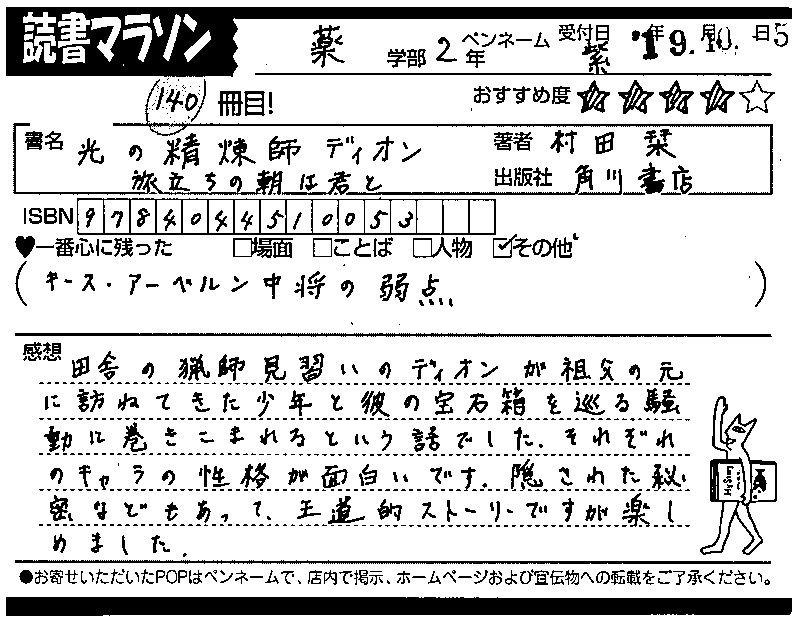 読書マラソン
薬 学部 2 年 ペンネーム 紫 受付日 '19年.10月.5日
140 冊目!
おすすめ度 ★★★★☆
書名 光の精煉師ディオン
旅立ちの朝は君と
著者 村田 栞
出版社 角川書店
ISBN 9784044510053
♥一番心に残った □場面 □ことば □人物 ☑その他
(キース・アーベルン中将の弱点…)
感想 田舎の猟師見習いのディオンが祖父の元
に訪ねてきた少年と彼の宝石箱を巡る騒
動に巻きこまれるという話でした.それぞれ
のキャラの性格が面白いです.隠された秘
密などもあって、王道的ストーリーですが楽し
めました.
●お寄せいただいたPOPはペンネームで、店内で掲示、ホームページおよび宣伝物への転載をご了承ください。